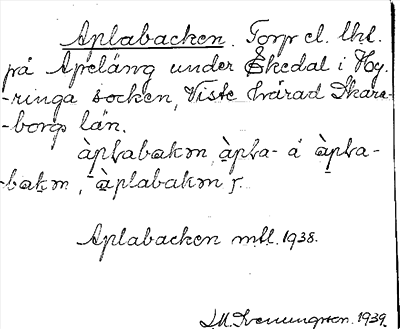 Aplabacken. Torp el. lht.
på Apeläng under Ekedal i Hy-
-ringa socken, Viste härad Skara-
-borgs län.
àpɫabakm, àpɫa- á àpɫa-
-bakm, àplabakm r.
Aplabacken mtl. 1938.
1939.